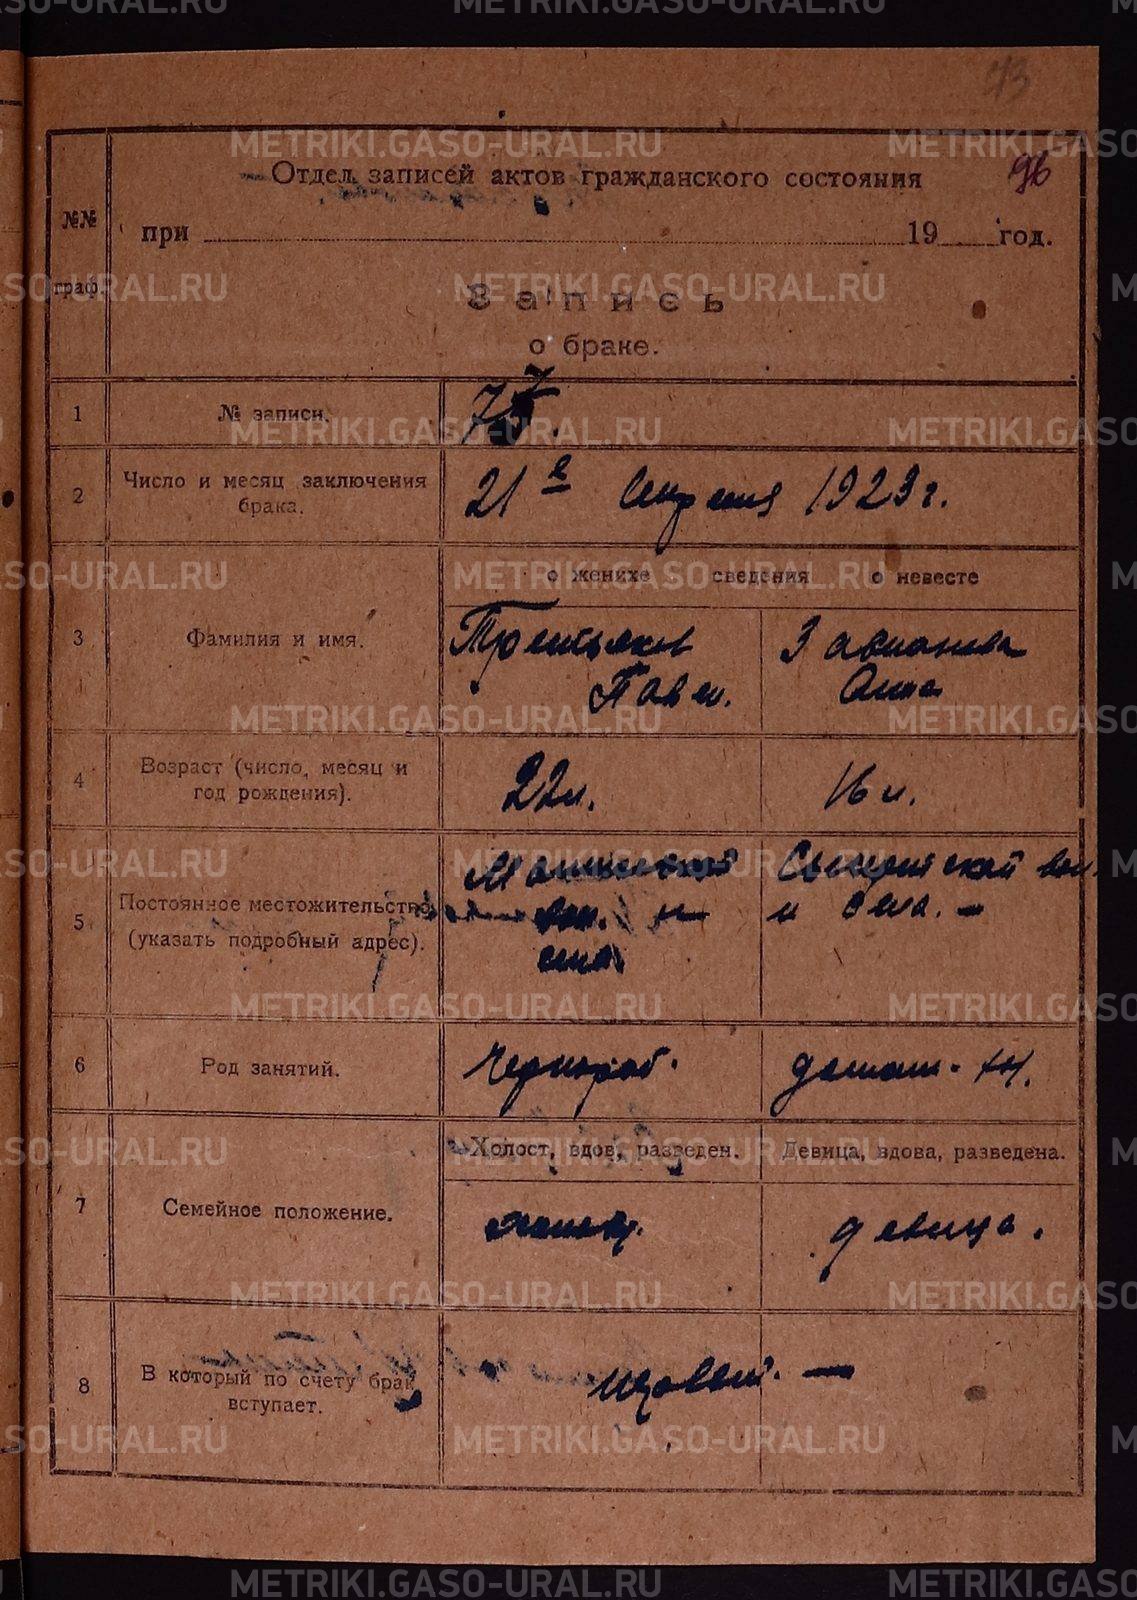 73
Отдел записей актов гражданского состояния
96
№№
граф.
при 19 год.
Запись
о браке.
1 № записи. 77.
2 Число и месяц заключения
брака.
21 е Апреля 1923 г.
3 Фамилия и имя.
о женихе сведения о невесте
Третьяков
Павел.
Анна
4 Возраст (число, месяц и
год рождения).
22 л. 16 л.
5 Постоянное местожительство
(указать подробный адрес).
вол. и
села.
Сысертской вол.
и села. —
6 Род занятий.
Чернораб. домаш. хоз.
7 Семейное положение.
Холост, вдов, разведен. Девица, вдова, разведена.
холост. девица.
8 В который по счету брак
вступает.
первый. —
METRIKI.GASO-URAL.RU